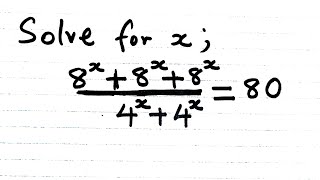 Solve for x;
8^x + 8^x + 8^x / 4^x + 4^x = 80